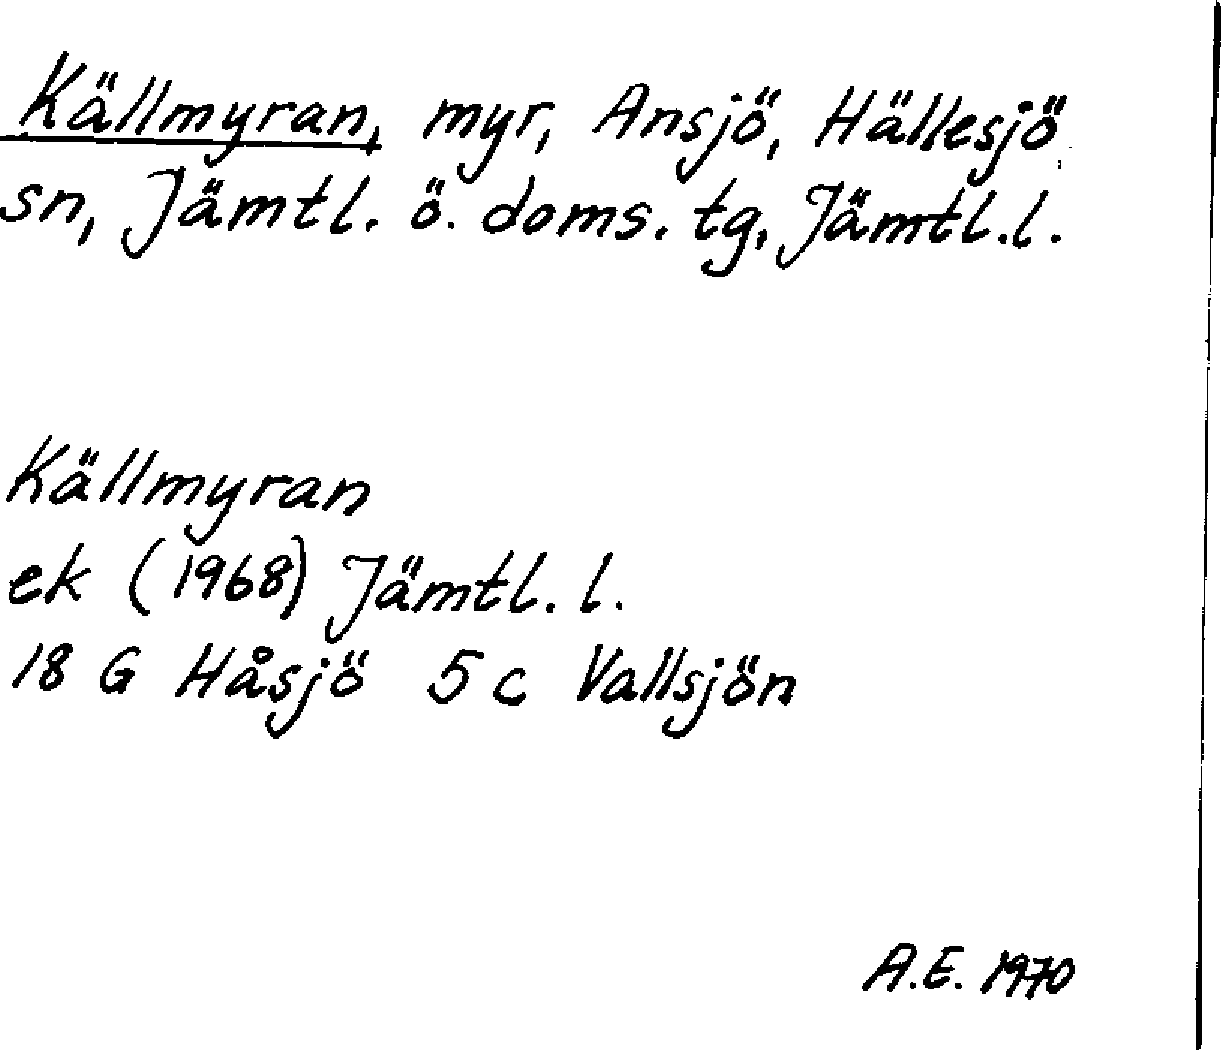 Källmyran, myr, Ansjö, Hällesjö
sn, Jämtl. ö. doms. tg, Jämtl.l.
Källmyran
ek (1968) Jämtl. l.
18 G Håsjö 5 c Vallsjön
A.E. 1970